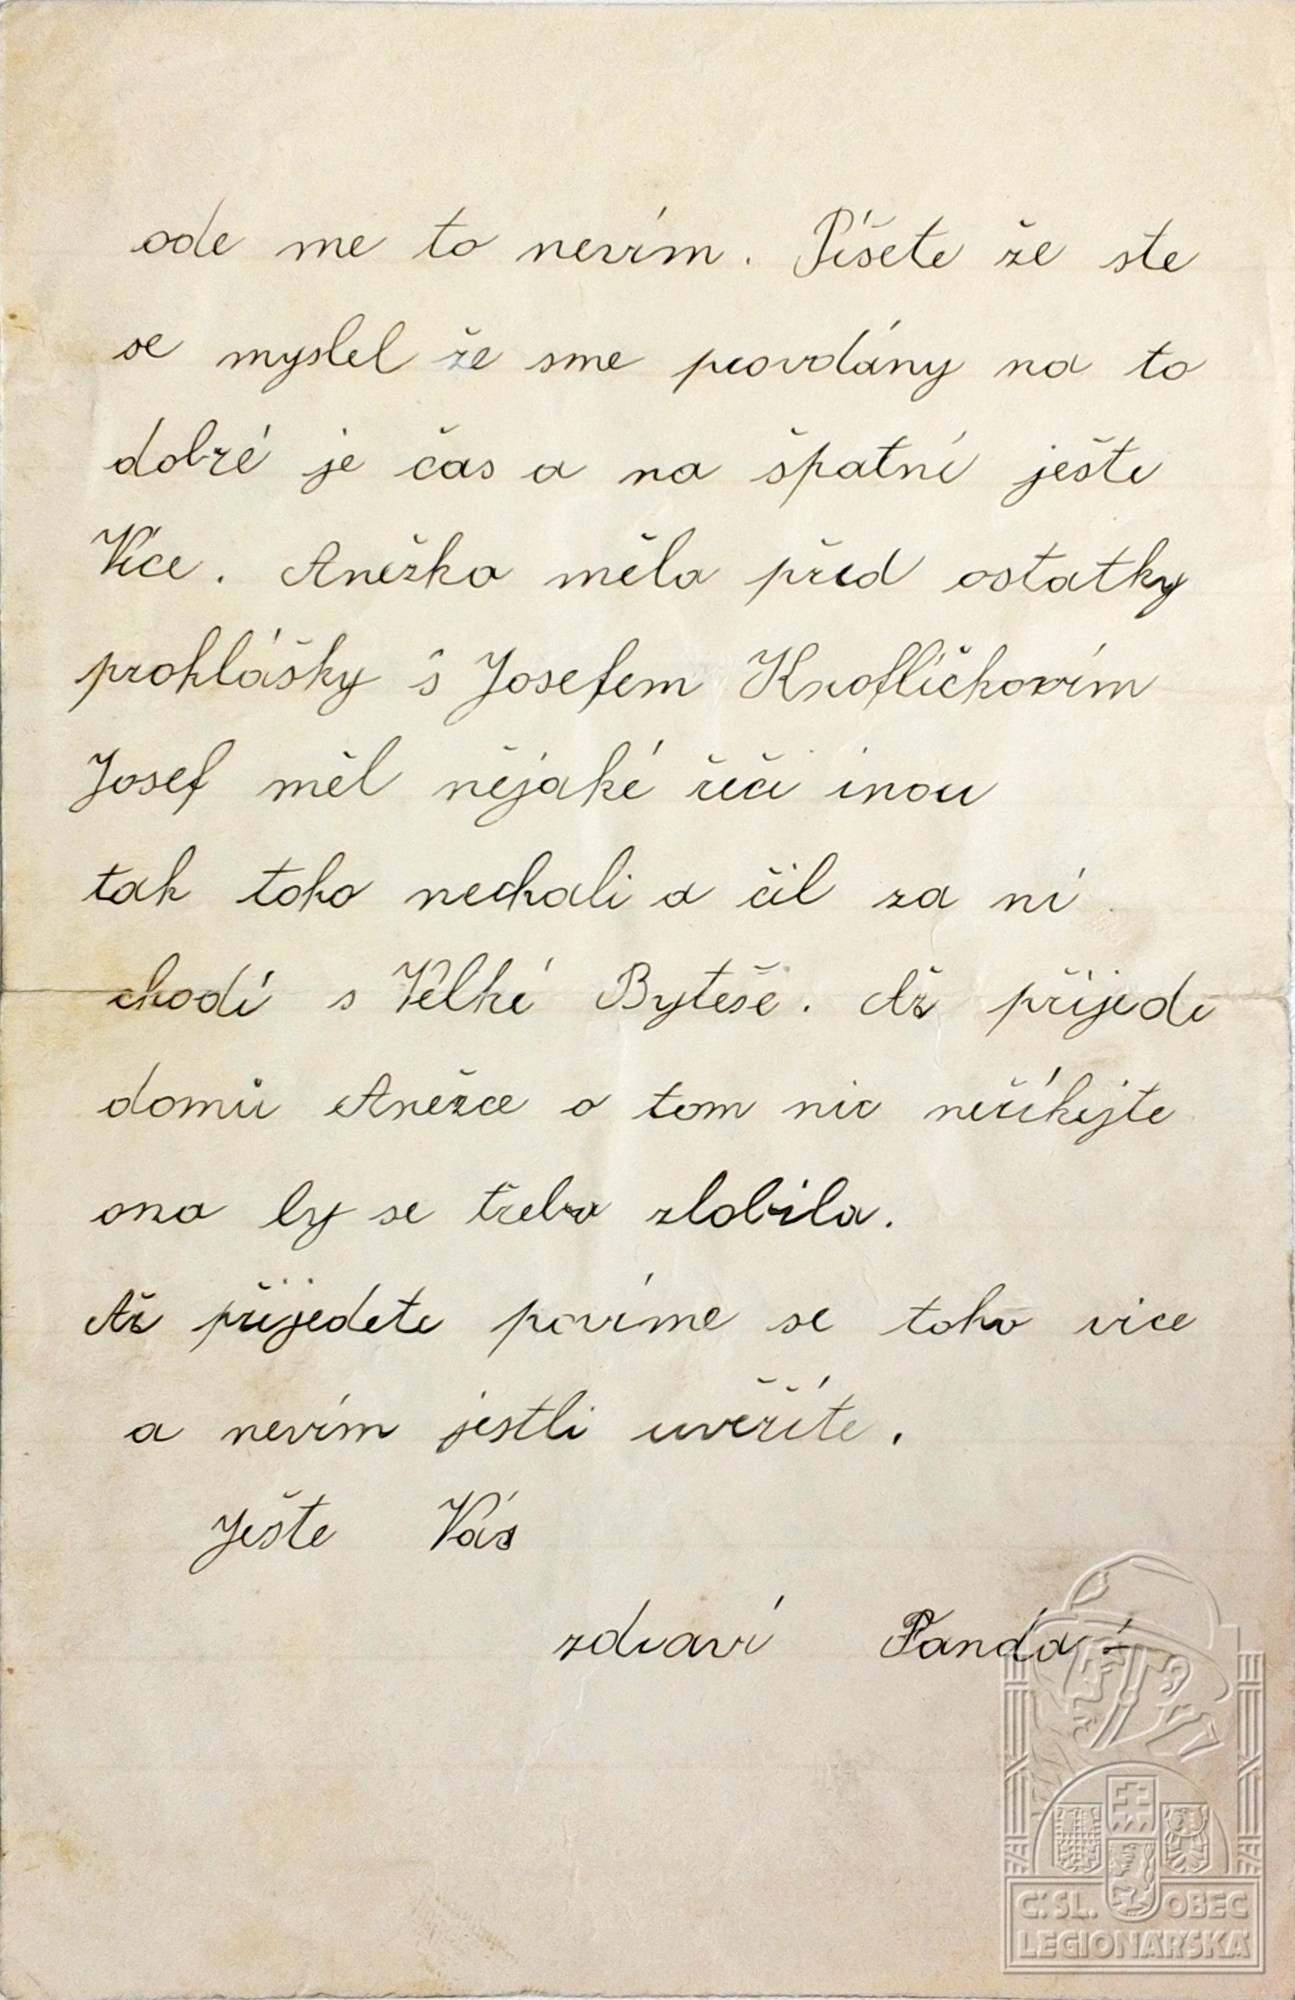 ode me to nevím. Píšete že ste
se myslel že sme provdány na to
dobré je čas a na špatní ješte
Více. Anežka měla před ostatky
prohlášky s Josefem Knoflíčkovím
Josef měl nějaké řeči inou
tak toho nechali a čil za ní
chodí s Velké Byteše. Až přijede
domů Anežce o tom nic neříkejte
ona by se třeba zlobila.
Až přijedete povíme se toho vice
a nevím jestli uvěříte.
Ješte Vás
zdraví Fanda
Č.SL. OBEC
LEGIONÁŘSKÁ